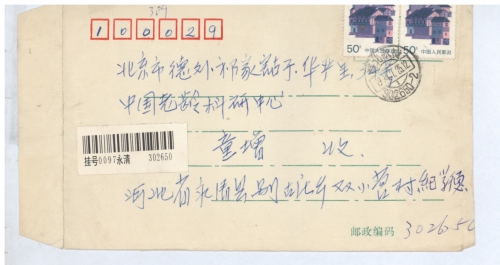 100029
50分 中国人民邮政 50分 中国人民邮政
北京市德外祁家豁子华严里
中国老龄科研中心
童增 收
挂号0097永清 302650
河北省永清县别古庄乡双小营村
邮政编码 302650